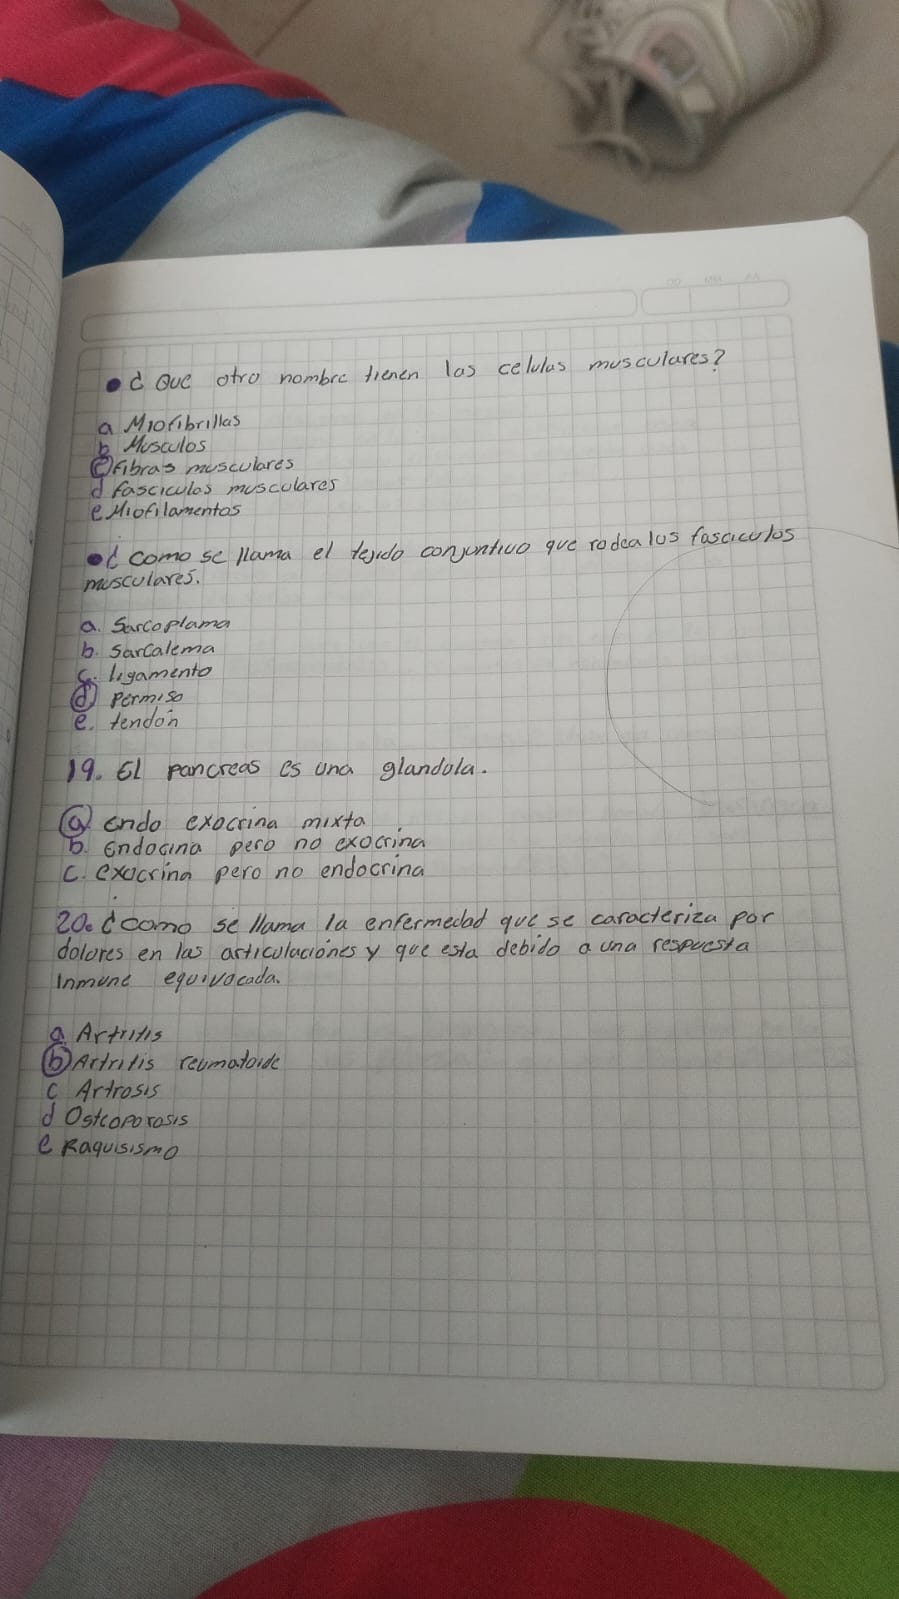 DD MM AA
• ¿ Que otro nombre tienen las celulas musculares?
a Miofibrillas
b Musculos
c Fibras musculares
d fasciculos musculares
e Miofilamentos
• ¿ como se llama el tejido conjuntivo que rodea los fasciculos
musculares.
a. Sarcoplama
b. Sarcalema
c. ligamento
d. Permiso
e. tendón
19. El pancreas es una glandola.
a. endo exocrina mixta
b. Endocina pero no exocrina
c. exocrina pero no endocrina
20. ¿como se llama la enfermedad que se caracteriza por
dolores en las articulaciónes y que esta debido a una respuesta
inmune equivocada.
a. Artritis
b Artritis reumatoide
c Artrosis
d Osteoporosis
e Raquisismo